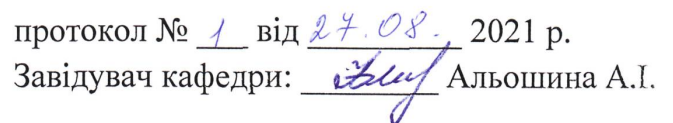 протокол № 1 від 27.08. 2021 р.
Завідувач кафедри: Альошина А.І.